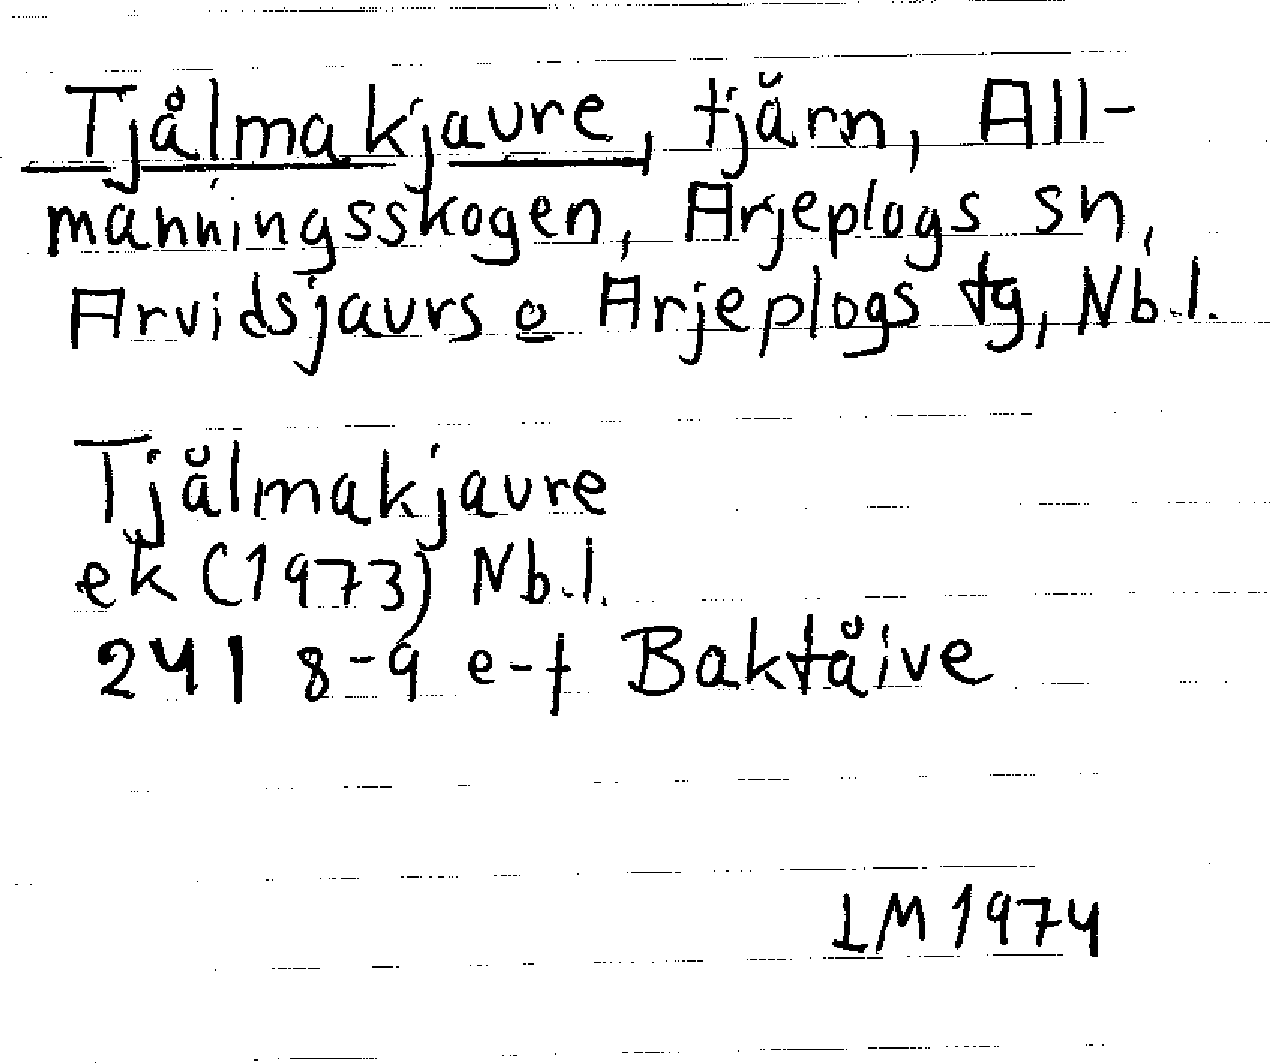 Tjålmakjaure, tjärn, All-
männingsskogen, Arjeplogs sn,
Arvidsjaurs o Arjeplogs tg, Nb.l.
Tjålmakjaure
ek (1973) Nb.l.
24I 8-9 e-f Baktåive
IM 1974